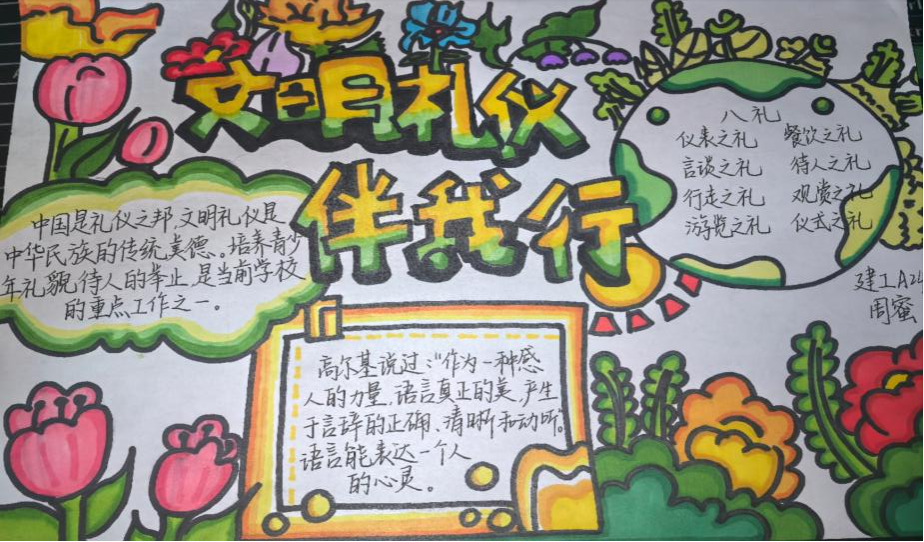 文明礼仪
伴我行
中国是礼仪之邦,文明礼仪是
中华民族的传统美德。培养青少
年礼貌待人的举止,是当前学校
的重点工作之一。
八礼
仪表之礼 餐饮之礼
言谈之礼 待人之礼
行走之礼 观赏之礼
游览之礼 仪式之礼
建工A24
周蜜
高尔基说过:“作为一种感
人的力量,语言真正的美,产生
于言辞的正确、清晰和动听。”
语言能表达一个人
的心灵。